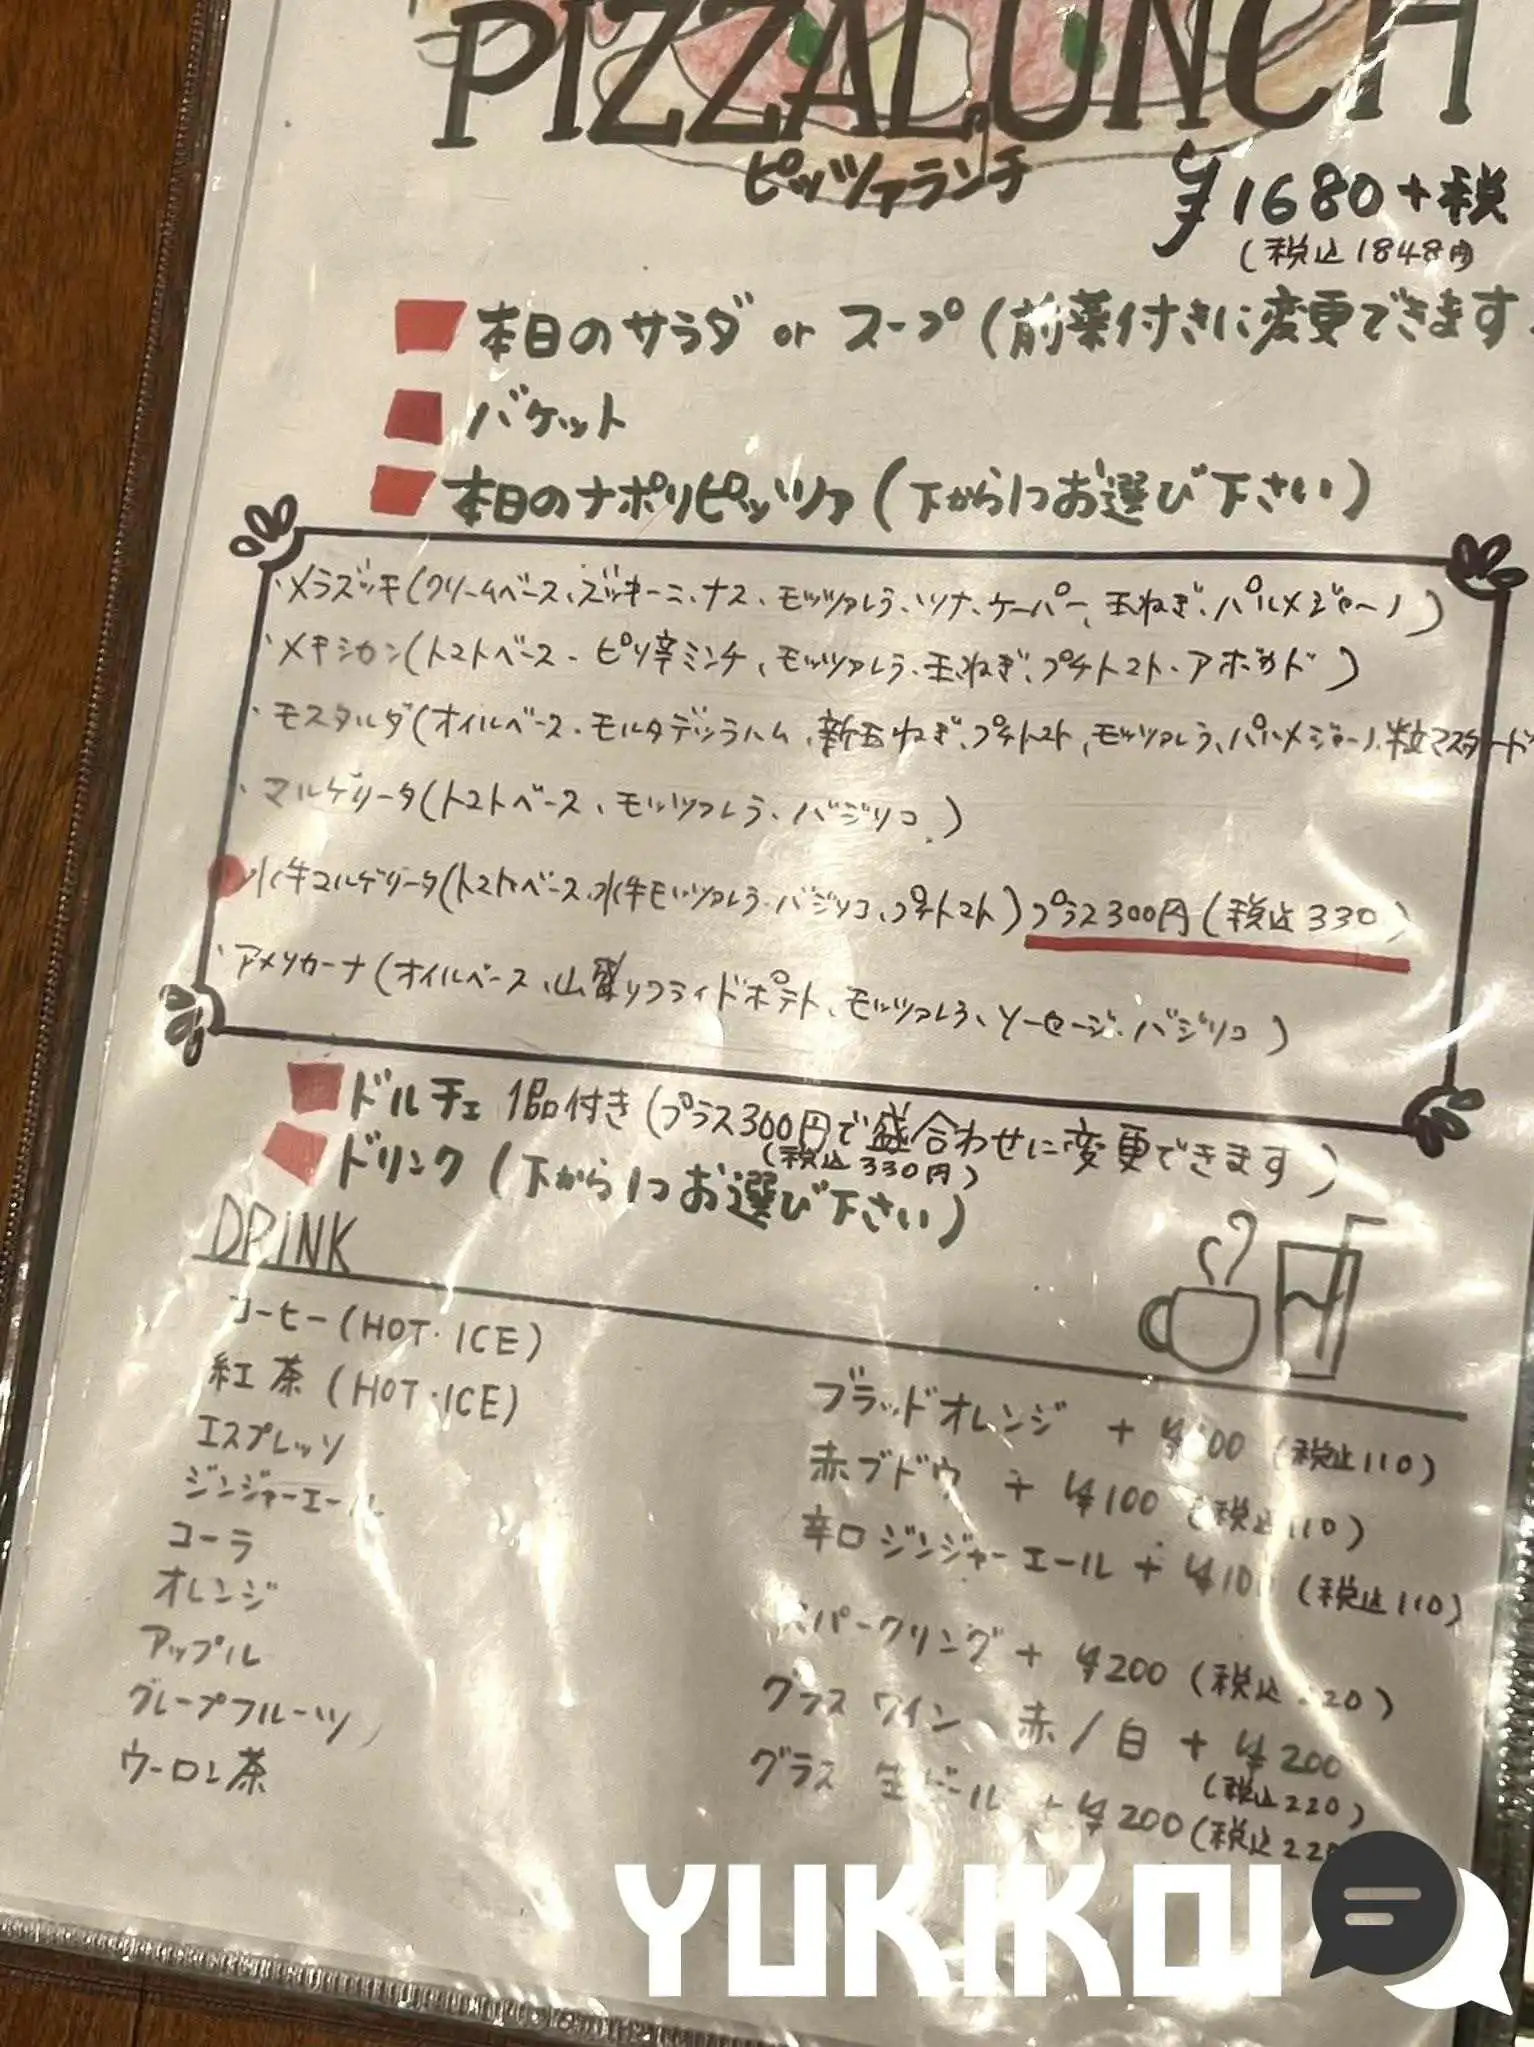 PIZZA LUNCH
ピッツァランチ
¥1680+税
(税込1848円)
本日のサラダ or スープ(前菜付きに変更できます
バケット
本日のナポリピッツァ(下から1つお選び下さい)
・メラズッキ(クリームベース、ズッキーニ、ナス、モッツァレラ、ツナ、ケーパー、玉ねぎ、パルメジャーノ)
・メキシカン(トマトベース、ピリ辛ミンチ、モッツァレラ、玉ねぎ、プチトマト、アボカド)
・モスタルダ(オイルベース、モルタデッラハム、新玉ねぎ、プチトマト、モッツァレラ、パルメジャーノ、粒マスタード
・マルゲリータ(トマトベース、モッツァレラ、バジリコ)
水牛マルゲリータ(トマトベース、水牛モッツァレラ、バジリコ、プチトマト)プラス300円(税込330)
・アメリカーナ(オイルベース、山盛りフライドポテト、モッツァレラ、ソーセージ、バジリコ)
ドルチェ 1品付き(プラス300円で盛合わせに変更できます)
(税込330円)
ドリンク(下から1つお選び下さい)
DRINK
コーヒー(HOT・ICE)
紅茶(HOT・ICE)
エスプレッソ
ジンジャーエール
コーラ
オレンジ
アップル
グレープフルーツ
ウーロン茶
ブラッドオレンジ +¥100(税込110)
赤ブドウ +¥100(税込110)
辛口ジンジャーエール +¥100(税込110)
スパークリング +¥200(税込220)
グラスワイン 赤/白 +¥200
(税込220)
グラス 生ビール +¥200(税込220
YUKIKO